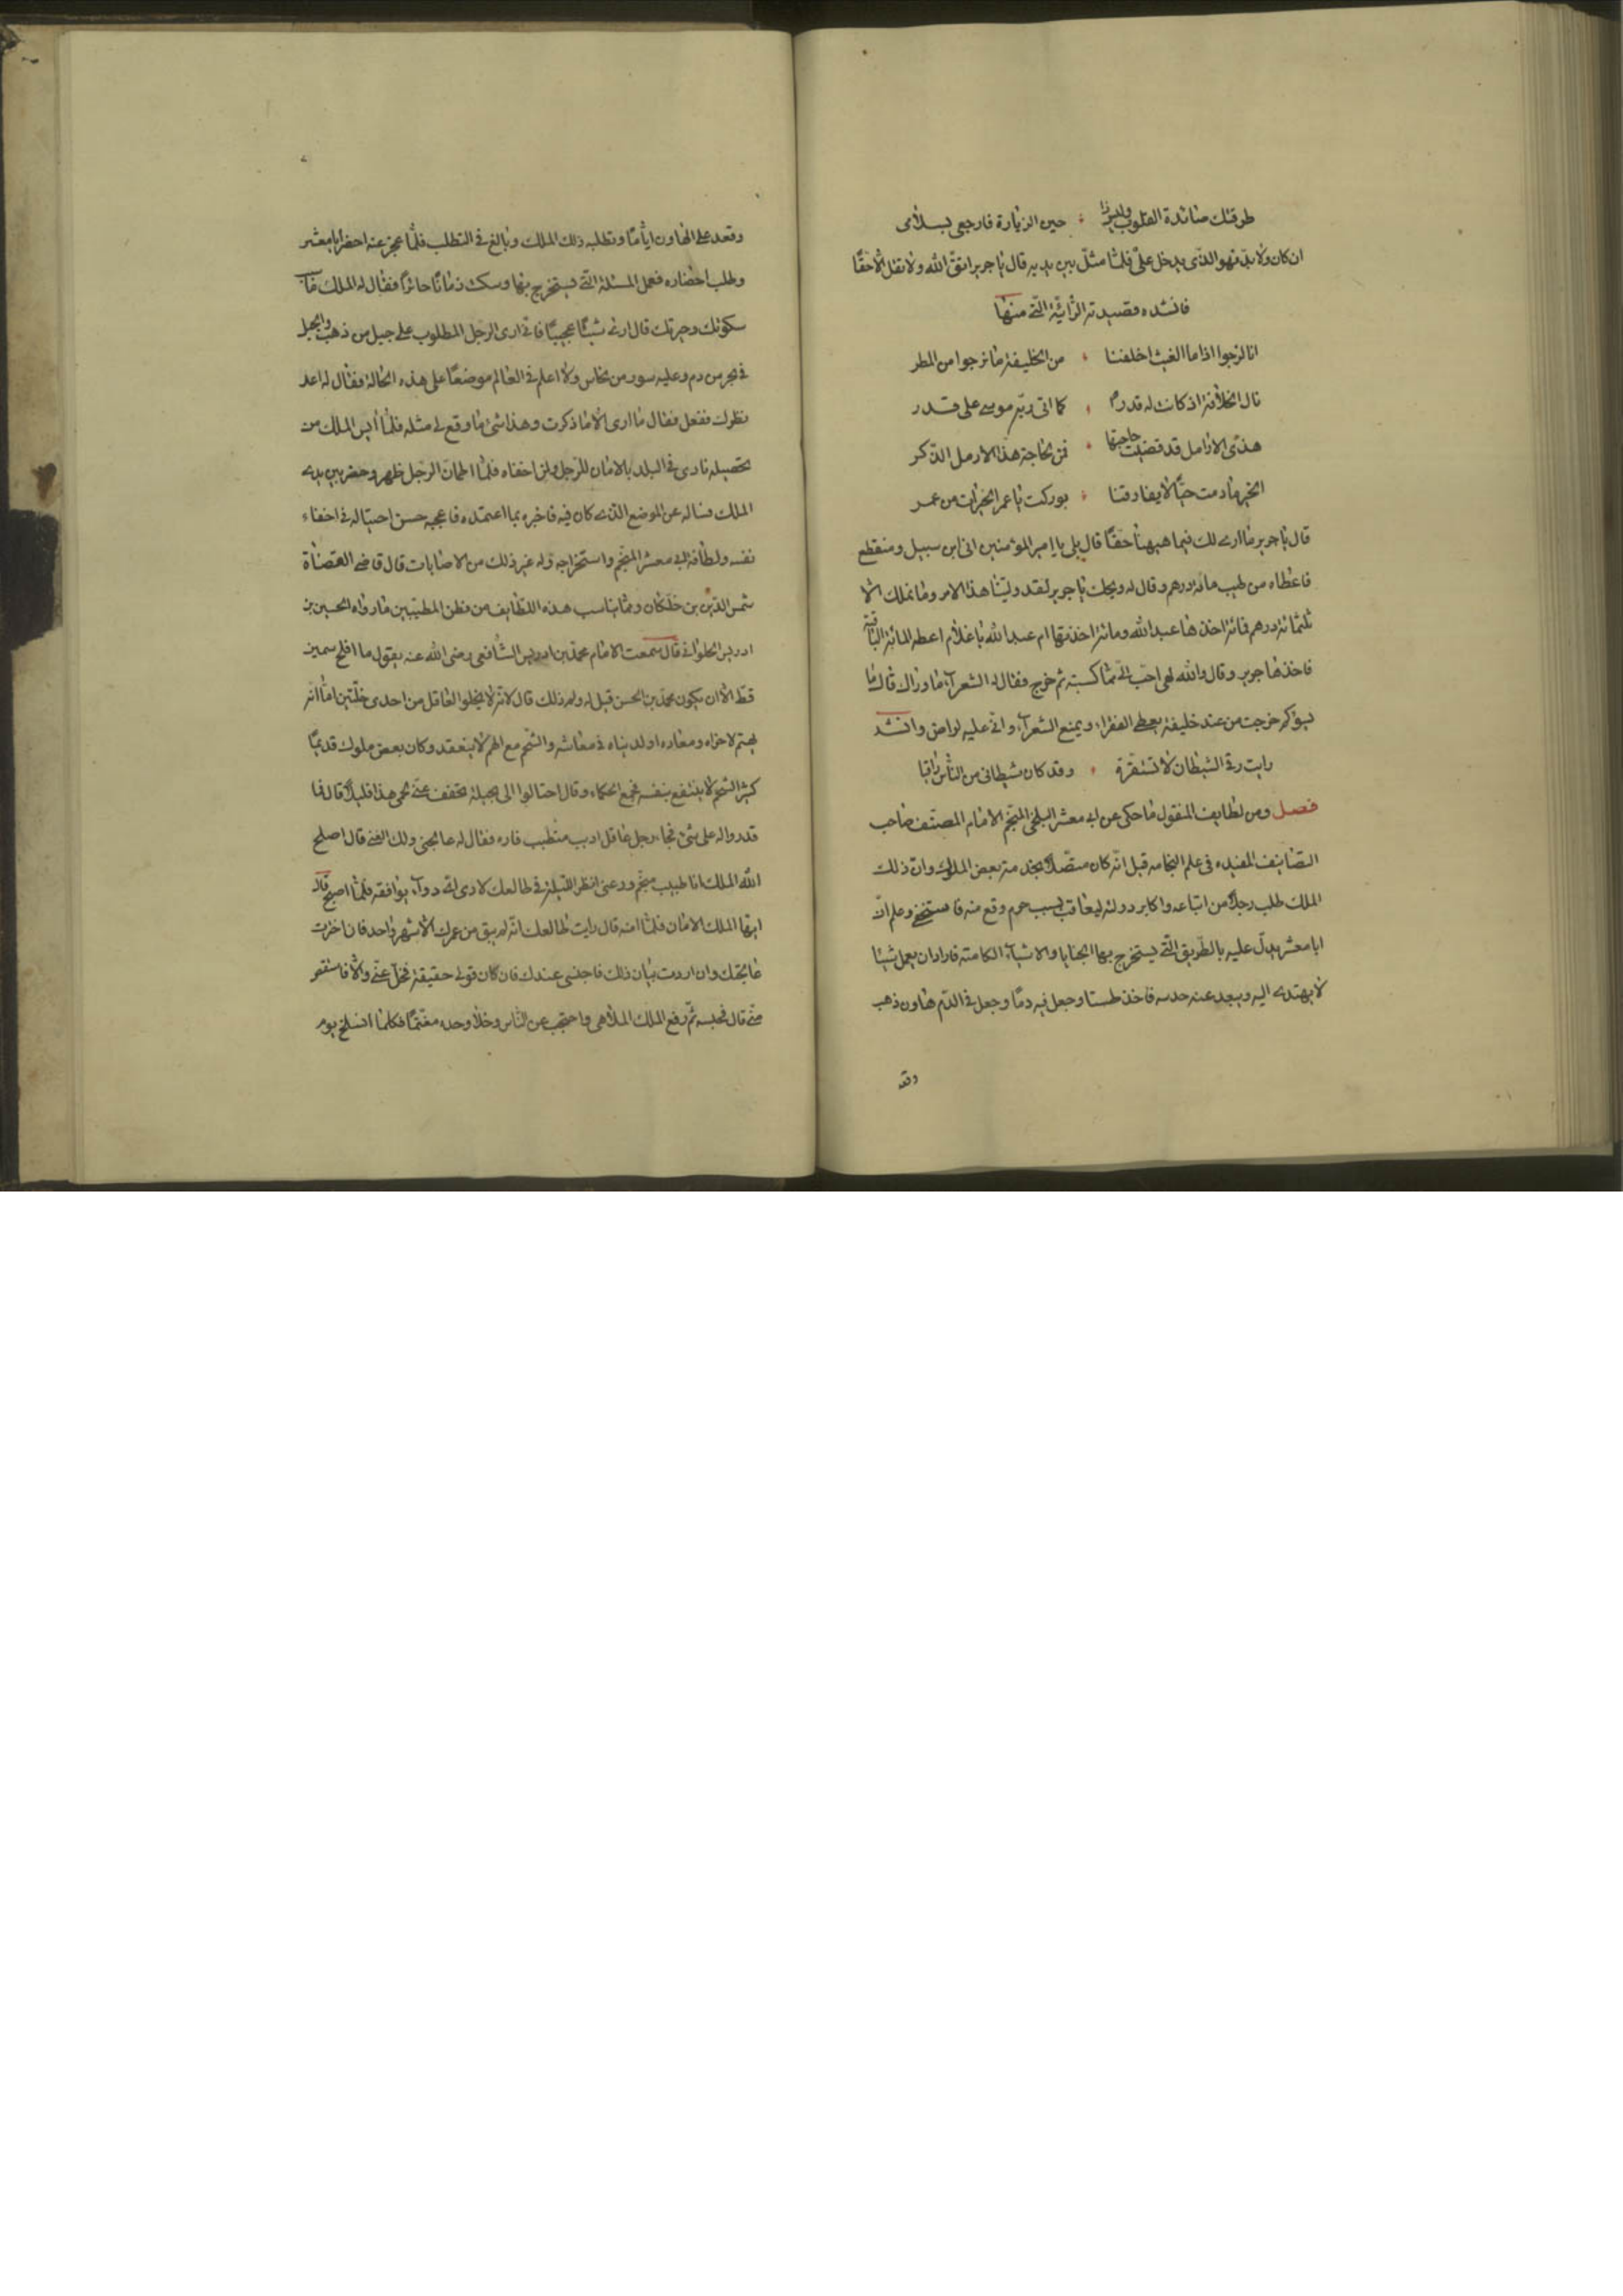 طرقتك صائدة القلوب وليس ذا حين الزيارة فارجعي بسلام
ان كان ولا بد فهو الذي يدخل علي فلما مثل بين يديه قال يا جرير اتق الله ولا تقل الا حقا
فانشده قصيدته الرائية التي منها
انا لنرجوا اذا ما الغيث اخلفنا من الخليفة ما نرجوا من المطر
نال الخلافة اذ كانت له قدرا كما اتى ربه موسى على قدر
هذى الارامل قد قضيت حاجتها فمن لحاجة هذا الارمل الذكر
الخير ما دمت حيا لا يفارقنا بوركت يا عمر الخيرات من عمر
قال يا جرير ما ارى لك فيما ههنا حقا قال بلى يا امير المؤمنين انى ابن سبيل ومنقطع
فاعطاه من طيب ماله درهم وقال له ويحك يا جرير لقد ولينا هذا الامر وما نملك الا
ثلثمائة درهم فمائة اخذها عبد الله ومائة اخذتها ام عبد الله يا غلام اعطه المائة الباقية
فاخذها جرير وقال والله لهى احب الى مما كسبته ثم خرج فقال له الشعراء ما وراك قال ما
يسؤكم خرجت من عند خليفة يعطى الفقراء ويمنع الشعراء وانى عليه لراض وانشد
رايت رقى الشيطان لا تستفزه وقد كان شيطانى من الناس راقيا
فصل ومن لطايف المنقول ما حكى عن ابى معشر البلخى المنجم الامام المصنف صاحب
التصانيف المفيده فى علم النجامه قيل انه كان متصلا بخدمة بعض الملوك وان ذلك
الملك طلب رجلا من اتباعه واكابر دولته ليعاقب بسبب جرم وقع منه فاستخفى وعلم ان
ابا معشر يدل عليه بالطريق التى يستخرج بها الخبايا والاشياء الكامنة فاراد ان يعمل شيئا
لا يهتدى اليه ويبعد عنه حدسه فاخذ طستا وجعل فيه دما وجعل فى الدم هاون ذهب
وقعد
وقعد على الهاون اياما وتطلبه ذلك الملك وبالغ فى التطلب فلما عجز عنه احضر ابا معشر
وطلب احضاره فعمل المسئلة التى يستخرج بها وسكت زمانا حائرا فقال له الملك ما
سكوتك وحيرتك قال ارى شيئا عجيبا فانى ارى الرجل المطلوب على جبل من ذهب والجبل
فى بحر من دم وعليه سور من نحاس ولا اعلم فى العالم موضعا على هذه الحالة فقال له اعد
نظرك ففعل فقال ما ارى الا ما ذكرت وهذا شئ ما وقع لى مثله فلما أيس الملك من
تحصيله نادى فى البلد بالامان للرجل ولمن اخفاه فلما اطمان الرجل ظهر وحضر بين يدى
الملك فساله عن الموضع الذى كان فيه فاخبره بما اعتمده فاعجبه حسن احتياله فى اخفاء
نفسه ولطافة ابى معشر المنجم واستخراجه وله غير ذلك من الاصابات قال قاضى القضاة
شمس الدين بن خلكان ومما يناسب هذه اللطايف من فطن المطببين ما رواه الحسين بن
ادريس الحلوانى قال سمعت الامام محمد بن ادريس الشافعى رضى الله عنه يقول ما افلح سمين
قط الا ان يكون محمد بن الحسن قيل له ولم ذلك قال لانه لا يخلوا العاقل من احدى خلتين اما انه
يهتم لاخراه ومعاده او لدنياه فى معاشه والشحم مع الهم لا ينعقد وكان بعض ملوك قديما
كثير الشحم لا ينتفع بنفسه فجمع الحكماء وقال احتالوا الى بحيلة تخفف عنى لحمى هذا قليلا قال فما
قدروا له على شئ فجاء رجل عاقل اديب متطبب فاره فقال له عالجنى ولك الغنى قال اصلح
الله الملك انا طبيب منجم ودعنى انظر الليلة فى طالعك لارى اى دواء يوافقه فلما اصبح قال
ايها الملك الامان فلما امنه قال رايت طالعك انه لم يبق من عمرك الا شهر واحد فان اخترت
عالجتك وان اردت بيان ذلك فاحبسنى عندك فان كان قولى حقيقة فخل عنى والا فاستقص
منى قال فحبسه ثم رفع الملك الملاهى واحتجب عن الناس وخلا وحده مغتما فكلما انسلخ يوم